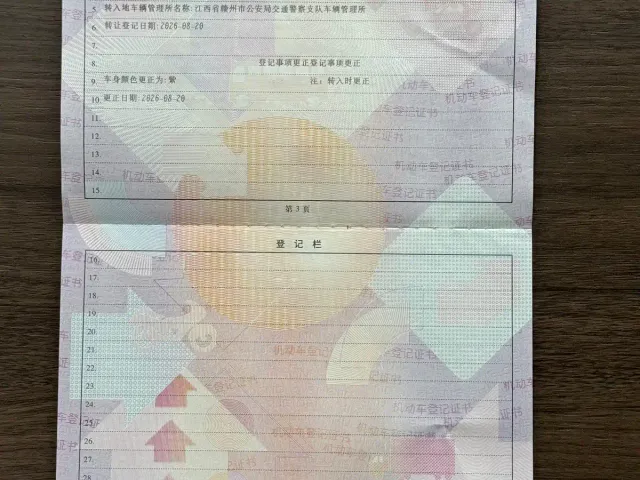 5. 转入地车辆管理所名称: 江西省赣州市公安局交通警察支队车辆管理所
6. 转让登记日期: 2026-08-20
7.
8. 登记事项更正登记事项更正
9. 车身颜色更正为: 紫 注: 转入时更正
10. 更正日期: 2026-08-20
11.
12.
13.
14.
15.
第 3 页
登 记 栏
16.
17.
18.
19.
20.
21.
22.
23.
24.
25.
26.
27.
28.
机动车登记证书